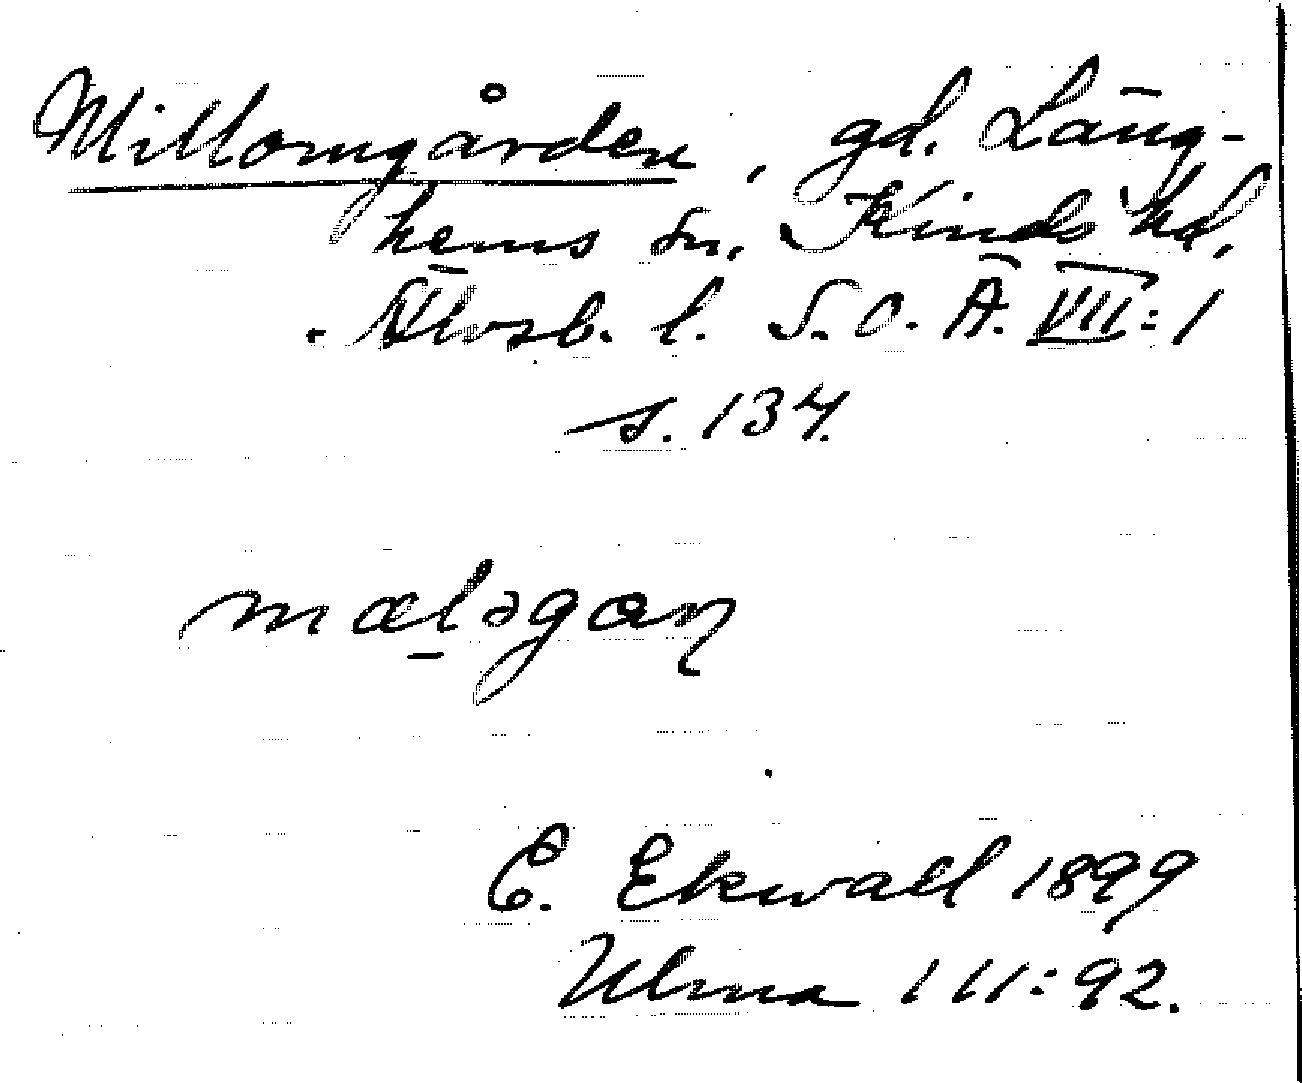 Millomgården, gd. Läng-
hems sn. Kinds hd.
Älvsb. l. S. O. Ä. VII:1
s. 134.
mælǝgaɳ
E. Ekwall 1899
Ulma 111:92.